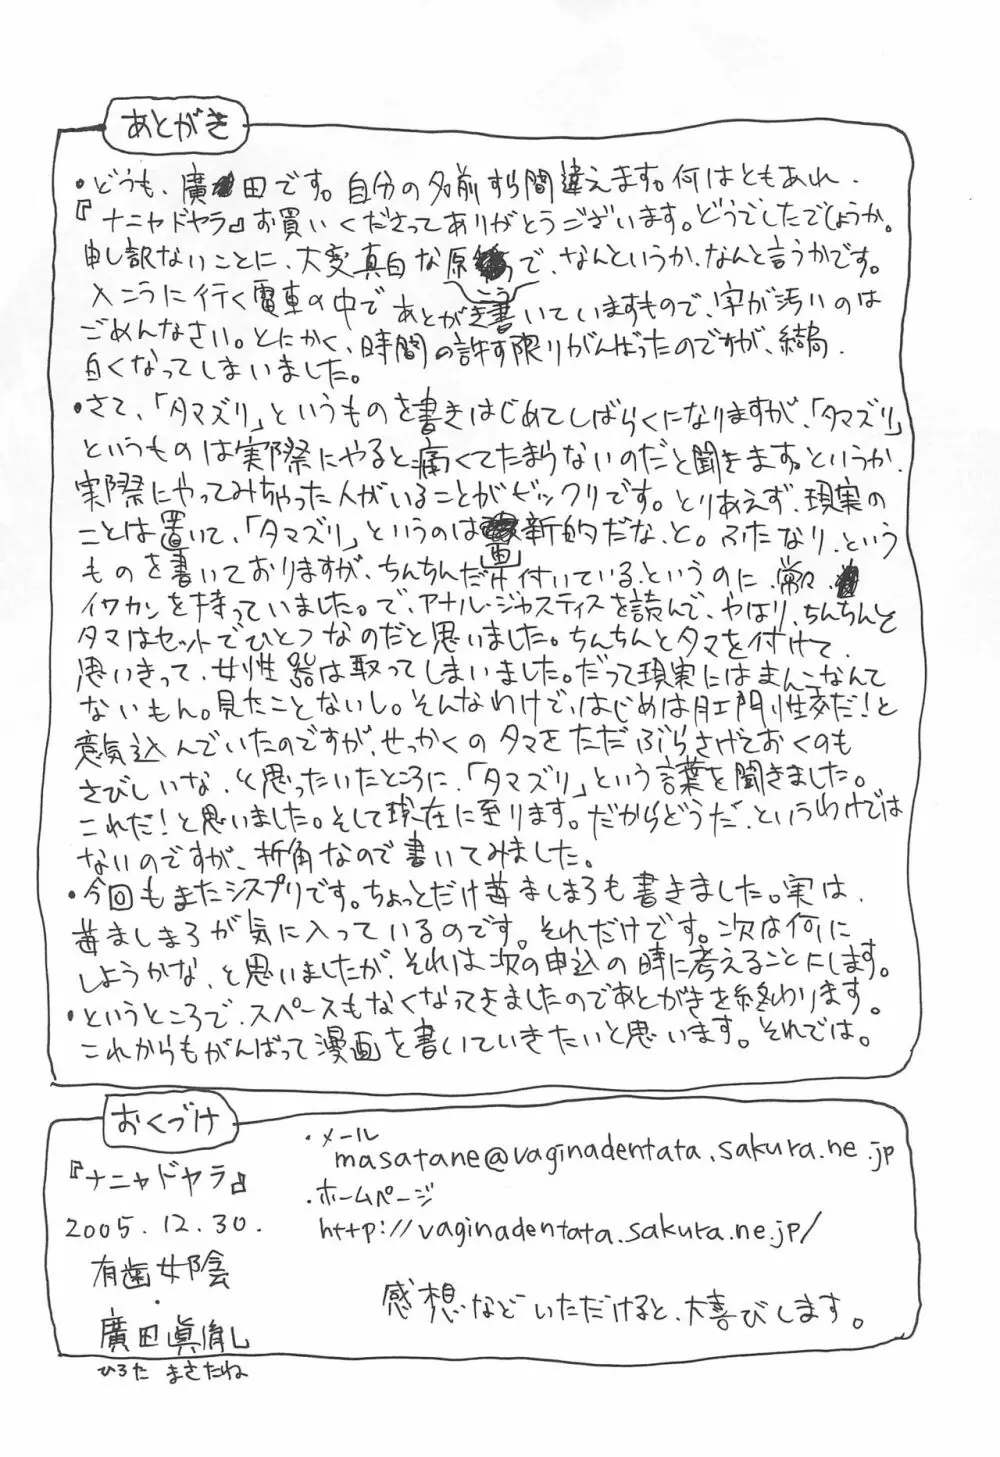 あとがき
・どうも、廣田です。自分の名前すら間違えます。何はともあれ、
『ナニャドヤラ』お買いくださってありがとうございます。どうでしたでしょうか。
申し訳ないことに、大変真白な原で、なんというか、なんと言うかです。
入こうに行く電車の中であとがき書いていますもので、字が汚いのは
ごめんなさい。とにかく、時間の許す限りがんばったのですが、結局、
白くなってしまいました。
・さて、「タマズリ」というものを書きはじめてしばらくになりますが、「タマズリ」
というものは実際にやると痛くてたまらないのだと聞きます。というか、
実際にやってみちゃった人がいることがビックリです。とりあえず、現実の
ことは置いて、「タマズリ」というのは新的だな、と。ふたなり、という
ものを書いておりますが、ちんちんだけ付いている、というのに、常々
イワカンを持っていました。で、アナル・ジャスティスを読んで、やはり、ちんちんと
タマはセットでひとつなのだと思いました。ちんちんとタマを付けて、
思いきって、女性器は取ってしまいました。だって現実にはまんこなんて
ないもん。見たことないし。そんなわけで、はじめは肛門性交だ!と
意気込んでいたのですが、せっかくのタマをただぶらさげておくのも
さびしいな、と思ったいたところに、「タマズリ」という言葉を聞きました。
これだ!と思いました。そして現在に至ります。だからどうだ、というわけでは
ないのですが、折角なので書いてみました。
・今回もまたシスプリです。ちょっとだけ苺ましまろも書きました。実は、
苺ましまろが気に入っているのです。それだけです。次は何に
しようかな、と思いましたが、それは次の申込の時に考えることにします。
・というところで、スペースもなくなってきましたのであとがきを終わります。
これからもがんばって漫画を書いていきたいと思います。それでは。
おくづけ
『ナニャドヤラ』
2005.12.30.
有歯女陰
・
廣田眞胤
ひろた まさたね
・メール
masatane@vaginadentata.sakura.ne.jp
・ホームページ
http://vaginadentata.sakura.ne.jp/
感想などいただけると、大喜びします。